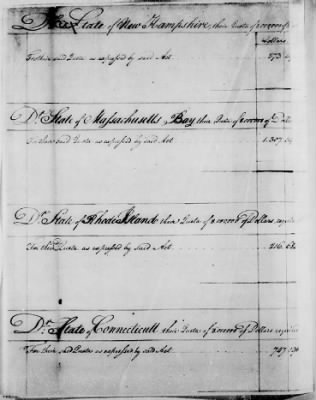 Dr. State of New Hampshire, their Quota of
Dollars
For their said Quota as expressed by said Act
Dr. State of Massachusetts Bay their Quota of Dollars
For their said Quota as expressed by said Act
Dr. State of Rhode Island their Quota of Dollars
For their Quota as expressed by said Act 216
Dr. State of Connecticutt their Quota of Dollars
For their said Quota as expressed by said Act 747